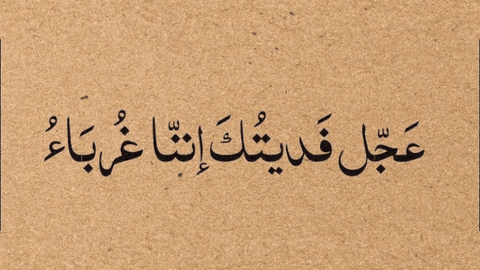 عَجّل فَديتُكَ إننّا غُربَاءُ